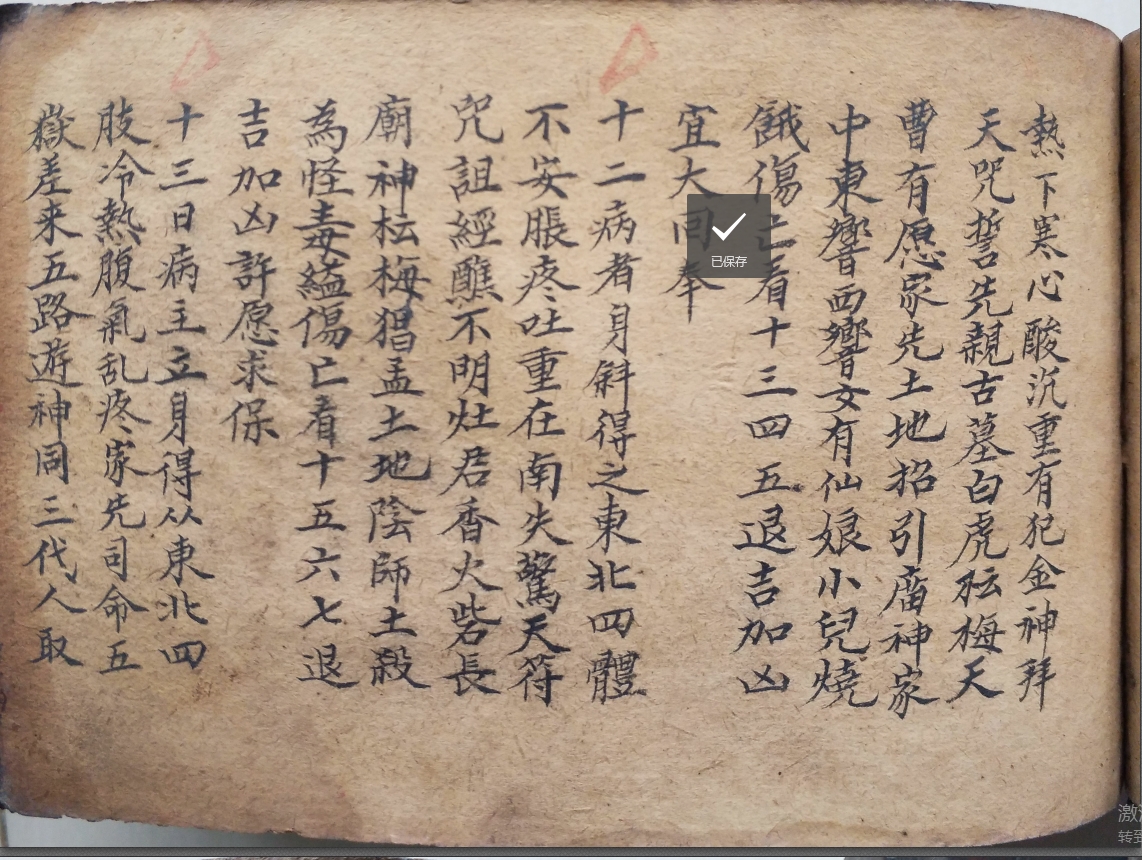 熱下寒心酸沉重有犯金神拜
天咒誓先親古墓白虎枟梅天
曹有愿家先土地招引廟神家
中東響西響女有仙娘小兒燒
餓傷亡看十三四五退吉加凶
宜大同奉
十二病者身斜得之東北四體
不安脹疼吐重在南失驚天符
咒詛經醮不明灶君香火砦長
廟神枟梅猖盂土地陰師土殺
為怪毒蘊傷亡看十五六七退
吉加凶許愿求保
十三日病主立身得从東北四
肢冷熱腹氣乱疼家先司命五
嶽差来五路遊神同三代人取
已保存
激
转到